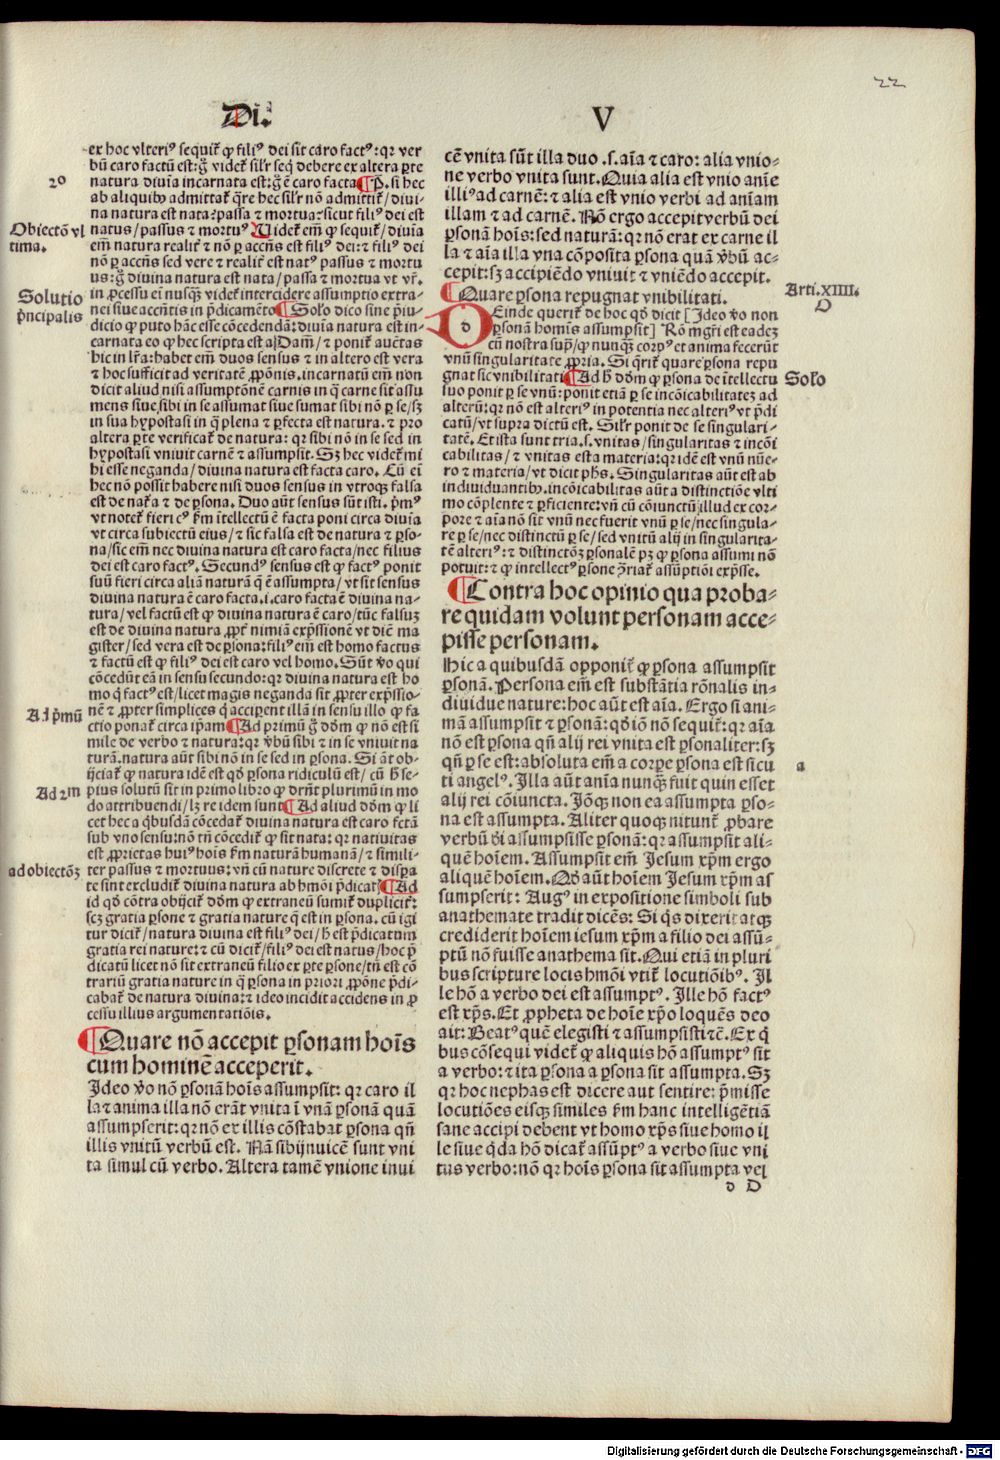 22
Di.
V
ex hoc vlteriꝰ sequit̃ ꝙ filiꝰ dei sit caro factꝰ: qꝛ ver
bũ caro factũ est: g̃ videt̃ sil'r seq̃ debere ex altera ꝑte
natura diuĩa incarnata est: g̃ ẽ caro facta ¶ P̃. si hec
ab aliquibꝰ admittat̃ q̃re hec sil'r nõ admittit̃/ diui-
na natura est nata? passa ⁊ mortua? sicut filiꝰ dei est
natus/ passus ⁊ mortuꝰ Uidet̃ em̃ ꝙ sequit̃/ diuĩa
em̃ natura realit̃ ⁊ nõ ꝑ accñs est filiꝰ dei: ⁊ filiꝰ dei
nõ ꝑ accñs sed vere ⁊ realit̃ est natꝰ passus ⁊ mortu
us: g̃ diuina natura est nata/ passa ⁊ mortua vt vr̃.
in ꝓcessu em̃ nusq̃ videt̃ intercidere assumptio extra-
nei siue accñtis in p̃dicamẽto ¶ Solo dico sine p̃iu-
dicio ꝙ puto hãc esse cõcedendã: diuĩa natura est in-
carnata eo ꝙ hec scripta est a Dam̃/ ⁊ ponit̃ auc̃tas
hic in lr̃a: habet em̃ duos sensus ⁊ in altero est vera
⁊ hoc sufficit ad veritatẽ ꝓpõnis. incarnatũ em̃ non
dicit aliud nisi assumptõnẽ carnis in q̃ carne sit assu
mens siue sibi in se assumat siue sumat sibi nõ ꝑ se/ sꝫ
in sua hypostasi in q̃ plena ⁊ ꝑfecta est natura. ⁊ pro
altera ꝑte verificat̃ de natura: qꝛ sibi nõ in se sed in
hypostasi vniuit carnẽ ⁊ assumpsit. Sꝫ hec videt̃ mi
hi esse neganda/ diuina natura est facta caro. Cũ em̃
hec nõ possit habere nisi duos sensus in vtroqꝫ falsa
est de nat̃a ⁊ de ꝑsona. Duo aũt sensus sũt isti. p̃mꝰ
vt notet̃ fieri cꝰ fm ĩtellectũ ẽ facta poni circa diuĩa
vt circa subiectũ eius/ ⁊ sic falsa est de natura ⁊ ꝑso-
na/ sic em̃ nec diuina natura est caro facta/ nec filius
dei est caro factꝰ. Secundꝰ sensus est ꝙ factꝰ ponit
suũ fieri circa aliã naturã q̃ ẽ assumpta/ vt sit sensus
diuina natura ẽ caro facta. i. caro facta ẽ diuina na-
tura/ vel factũ est ꝙ diuina natura ẽ caro/ tũc falsuꝫ
est de diuina natura ꝓpt̃ nimiã exp̃ssionẽ vt diẽ ma
gister/ sed vera est de ꝑsona: filiꝰ em̃ est homo factus
⁊ factũ est ꝙ filiꝰ dei est caro vel homo. Sũt v̾o qui
cõcedũt eã in sensu secundo: qꝛ diuina natura est ho
mo q̃ factꝰ est/ licet magis neganda sit ꝓpter exp̃ssio-
nẽ ⁊ ꝓpter simplices q̃ accip̃ent illã in sensu illo ꝙ fa
ctio ponat̃ circa ip̃am ¶ Ad primũ g̃ dõm ꝙ nõ est si
mile de verbo ⁊ natura: qꝛ v̾bũ sibi ⁊ in se vniuit na
turã. natura aũt sibi nõ in se sed in ꝑsona. Si aũt ob-
ijciat̃ ꝙ natura idẽ est qd̾ ꝑsona ridiculũ est/ cũ h̾ se-
pius solutũ sit in primo libro ꝙ dr̃nt plurimũ in mo
do attribuendi/ lꝫ re idem sunt ¶ Ad aliud dõm ꝙ li
cet hec a q̃busdã cõcedat̃ diuina natura est caro fctã
sub vno sensu: nõ tñ cõcedit̃ ꝙ sit nata: qꝛ natiuitas
est ꝓprietas huiꝰ hoĩs fm naturã humanã/ ⁊ simili-
ter passus ⁊ mortuus: vñ cũ nature discrete ⁊ disꝑa
te sint excludit̃ diuina natura ab hmõi p̃dicat̃ ¶ Ad
id qd̾ cõtra obijcit̃ dõm ꝙ extraneũ sumit̃ duplicit̃:
scꝫ gratia ꝑsone ⁊ gratia nature q̃ est in ꝑsona. cũ igi
tur dicit̃/ natura diuina est filiꝰ dei/ h̾ est p̃dicatum
gratia rei nature: ⁊ cũ dicit̃/ filiꝰ dei est natus/ hoc p̃
dicatũ licet nõ sit extraneũ filio ex ꝑte ꝑsone/ tñ est cõ
trariũ gratia nature in q̃ ꝑsona in priori ꝓpõne p̃di-
cabat̃ de natura diuina: ⁊ ideo incidit accidens in ꝓ
cessu illius argumentatiõis.
¶ Quare nõ accepit ꝑsonam hoĩs
cum hominẽ acceperit.
Ideo v̾o nõ ꝑsonã hoĩs assumpsit: qꝛ caro il
la ⁊ anima illa nõ erãt vnita ĩ vnã ꝑsonã quã
assumpserit: qꝛ nõ ex illis cõstabat ꝑsona qñ
illis vnitũ verbũ est. Nã sibijnuicẽ sunt vni
ta simul cũ verbo. Altera tamẽ vnione inui
2o
Obiectõ vl
tima.
Solutio
p̃ncipalis
Ad p̃mũ
Ad 2m
ad obiectõꝫ
cẽ vnita sũt illa duo .s. aĩa ⁊ caro: alia vnio-
ne verbo vnita sunt. Quia alia est vnio anĩe
illiꝰ ad carnẽ: ⁊ alia est vnio verbi ad anĩam
illam ⁊ ad carnẽ. Nõ ergo accepit verbũ dei
ꝑsonã hoĩs: sed naturã: qꝛ nõ erat ex carne il
la ⁊ aĩa illa vna cõposita ꝑsona quã v̾bũ ac-
cepit: sꝫ accipiẽdo vniuit ⁊ vniẽdo accepit.
¶ Quare ꝑsona repugnat vnibilitati.
d Einde querit̃ de hoc qd̾ dicit [Ideo v̾o non
ꝑsonã hominis assumpsit] Rõ mg̃ri est eadeꝫ
cũ nostra supꝰ/ ꝙ nunqꝫ corpꝰ et anima fecerũt
vnũ singularitate ꝓpria. Si q̃rit̃ quare ꝑsona repu
gnat sic vnibilitati ¶ Ad h̾ dõm ꝙ ꝑsona de ĩtellectu
suo ponit ꝑ se vnũ: ponit etiã ꝑ se incõicabilitateꝫ ad
alterũ: qꝛ nõ est alteriꝰ in potentia nec alteriꝰ vt p̃di
catũ/ vt supra dictũ est. Sil'r ponit de se singulari-
tatẽ. Et ista sunt tria .s. vnitas/ singularitas ⁊ incõi
cabilitas/ ⁊ vnitas est a materia: qꝛ idẽ est vnũ nũe-
ro ⁊ materia/ vt dicit phs. Singularitas aũt est ab
indiuiduantibꝰ. incõicabilitas aũt a distinctiõe vlti
mo cõplente ⁊ ꝑficiente: vñ cũ cõiunctũ illud ex cor-
pore ⁊ aĩa nõ sit vnũ nec fuerit vnũ ꝑ se/ nec singula-
re ꝑ se/ nec distinctũ ꝑ se/ sed vnitũ alij in singularita-
tẽ alteriꝰ: ⁊ distinctõꝫ ꝑsonalẽ pꝫ ꝙ ꝑsona assumi nõ
potuit: ⁊ ꝙ intellectꝰ ꝑsone ꝯ̃riat̃ assũptiõi exp̃sse.
¶ Contra hoc opinio qua proba-
re quidam volunt personam acce-
pisse personam.
Hic a quibusdã opponit̃ ꝙ ꝑsona assumpsit
ꝑsonã. Persona em̃ est substãtia rõnalis in-
diuidue nature: hoc aũt est aĩa. Ergo si ani-
mã assumpsit ⁊ ꝑsonã: qd̾ iõ nõ sequit̃: qꝛ aĩa
nõ est ꝑsona qñ alij rei vnita est ꝑsonaliter: sꝫ
qñ ꝑ se est: absoluta em̃ a corꝑe ꝑsona est sicu
ti angelꝰ. Illa aũt anĩa nunqꝫ fuit quin esset
alij rei cõiuncta. Iõqꝫ non ea assumpta ꝑso-
na est assumpta. Aliter quoqꝫ nitunt̃ ꝓbare
verbũ dei assumpsisse ꝑsonã: qꝛ assumpsit ali-
quẽ hoĩem. Assumpsit em̃ Jesum xp̃m ergo
aliquẽ hoĩem. Qd̾ aũt hoĩem Jesum xp̃m as
sumpserit: Augꝰ in expositione simboli sub
anathemate tradit dicẽs: Si q̃s dixerit atqꝫ
crediderit hoĩem iesum xp̃m a filio dei assũ-
ptũ nõ fuisse anathema sit. Qui etiã in pluri
bus scripture locis hmõi vtit̃ locutiõibꝰ. Il
le hõ a verbo dei est assumptꝰ. Ille hõ factꝰ
est xp̃s. Et ꝓpheta de hoĩe xp̃o loquẽs deo
ait: Beatꝰ quẽ elegisti ⁊ assumpsisti ⁊c̃. Ex q̃
bus cõsequi videt̃ ꝙ aliquis hõ assumptꝰ sit
a verbo: ⁊ ita ꝑsona a ꝑsona sit assumpta. Sꝫ
qꝛ hoc nephas est dicere aut sentire: p̃misse
locutiões eisqꝫ similes fm hanc intelligẽtiã
sane accipi debent vt homo xp̃s siue homo il
le siue q̃da hõ dicat̃ assũptꝰ a verbo siue vni
tus verbo: nõ qꝛ hoĩs ꝑsona sit assumpta vel
d D
Arti. XIIII.
D
Solo
a
Digitalisierung gefördert durch die Deutsche Forschungsgemeinschaft - DFG